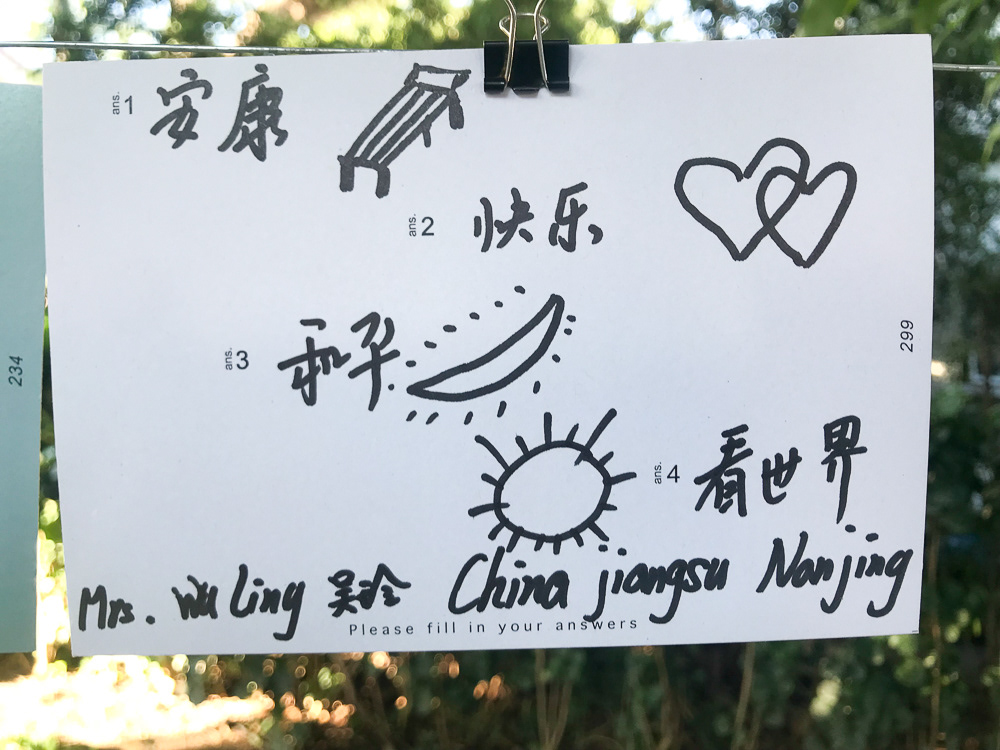 ans. 1 安康
ans. 2 快乐
ans. 3 和平
299
234
ans. 4 看世界
Mrs. Wu Ling 吴玲 China jiangsu Nanjing
Please fill in your answers